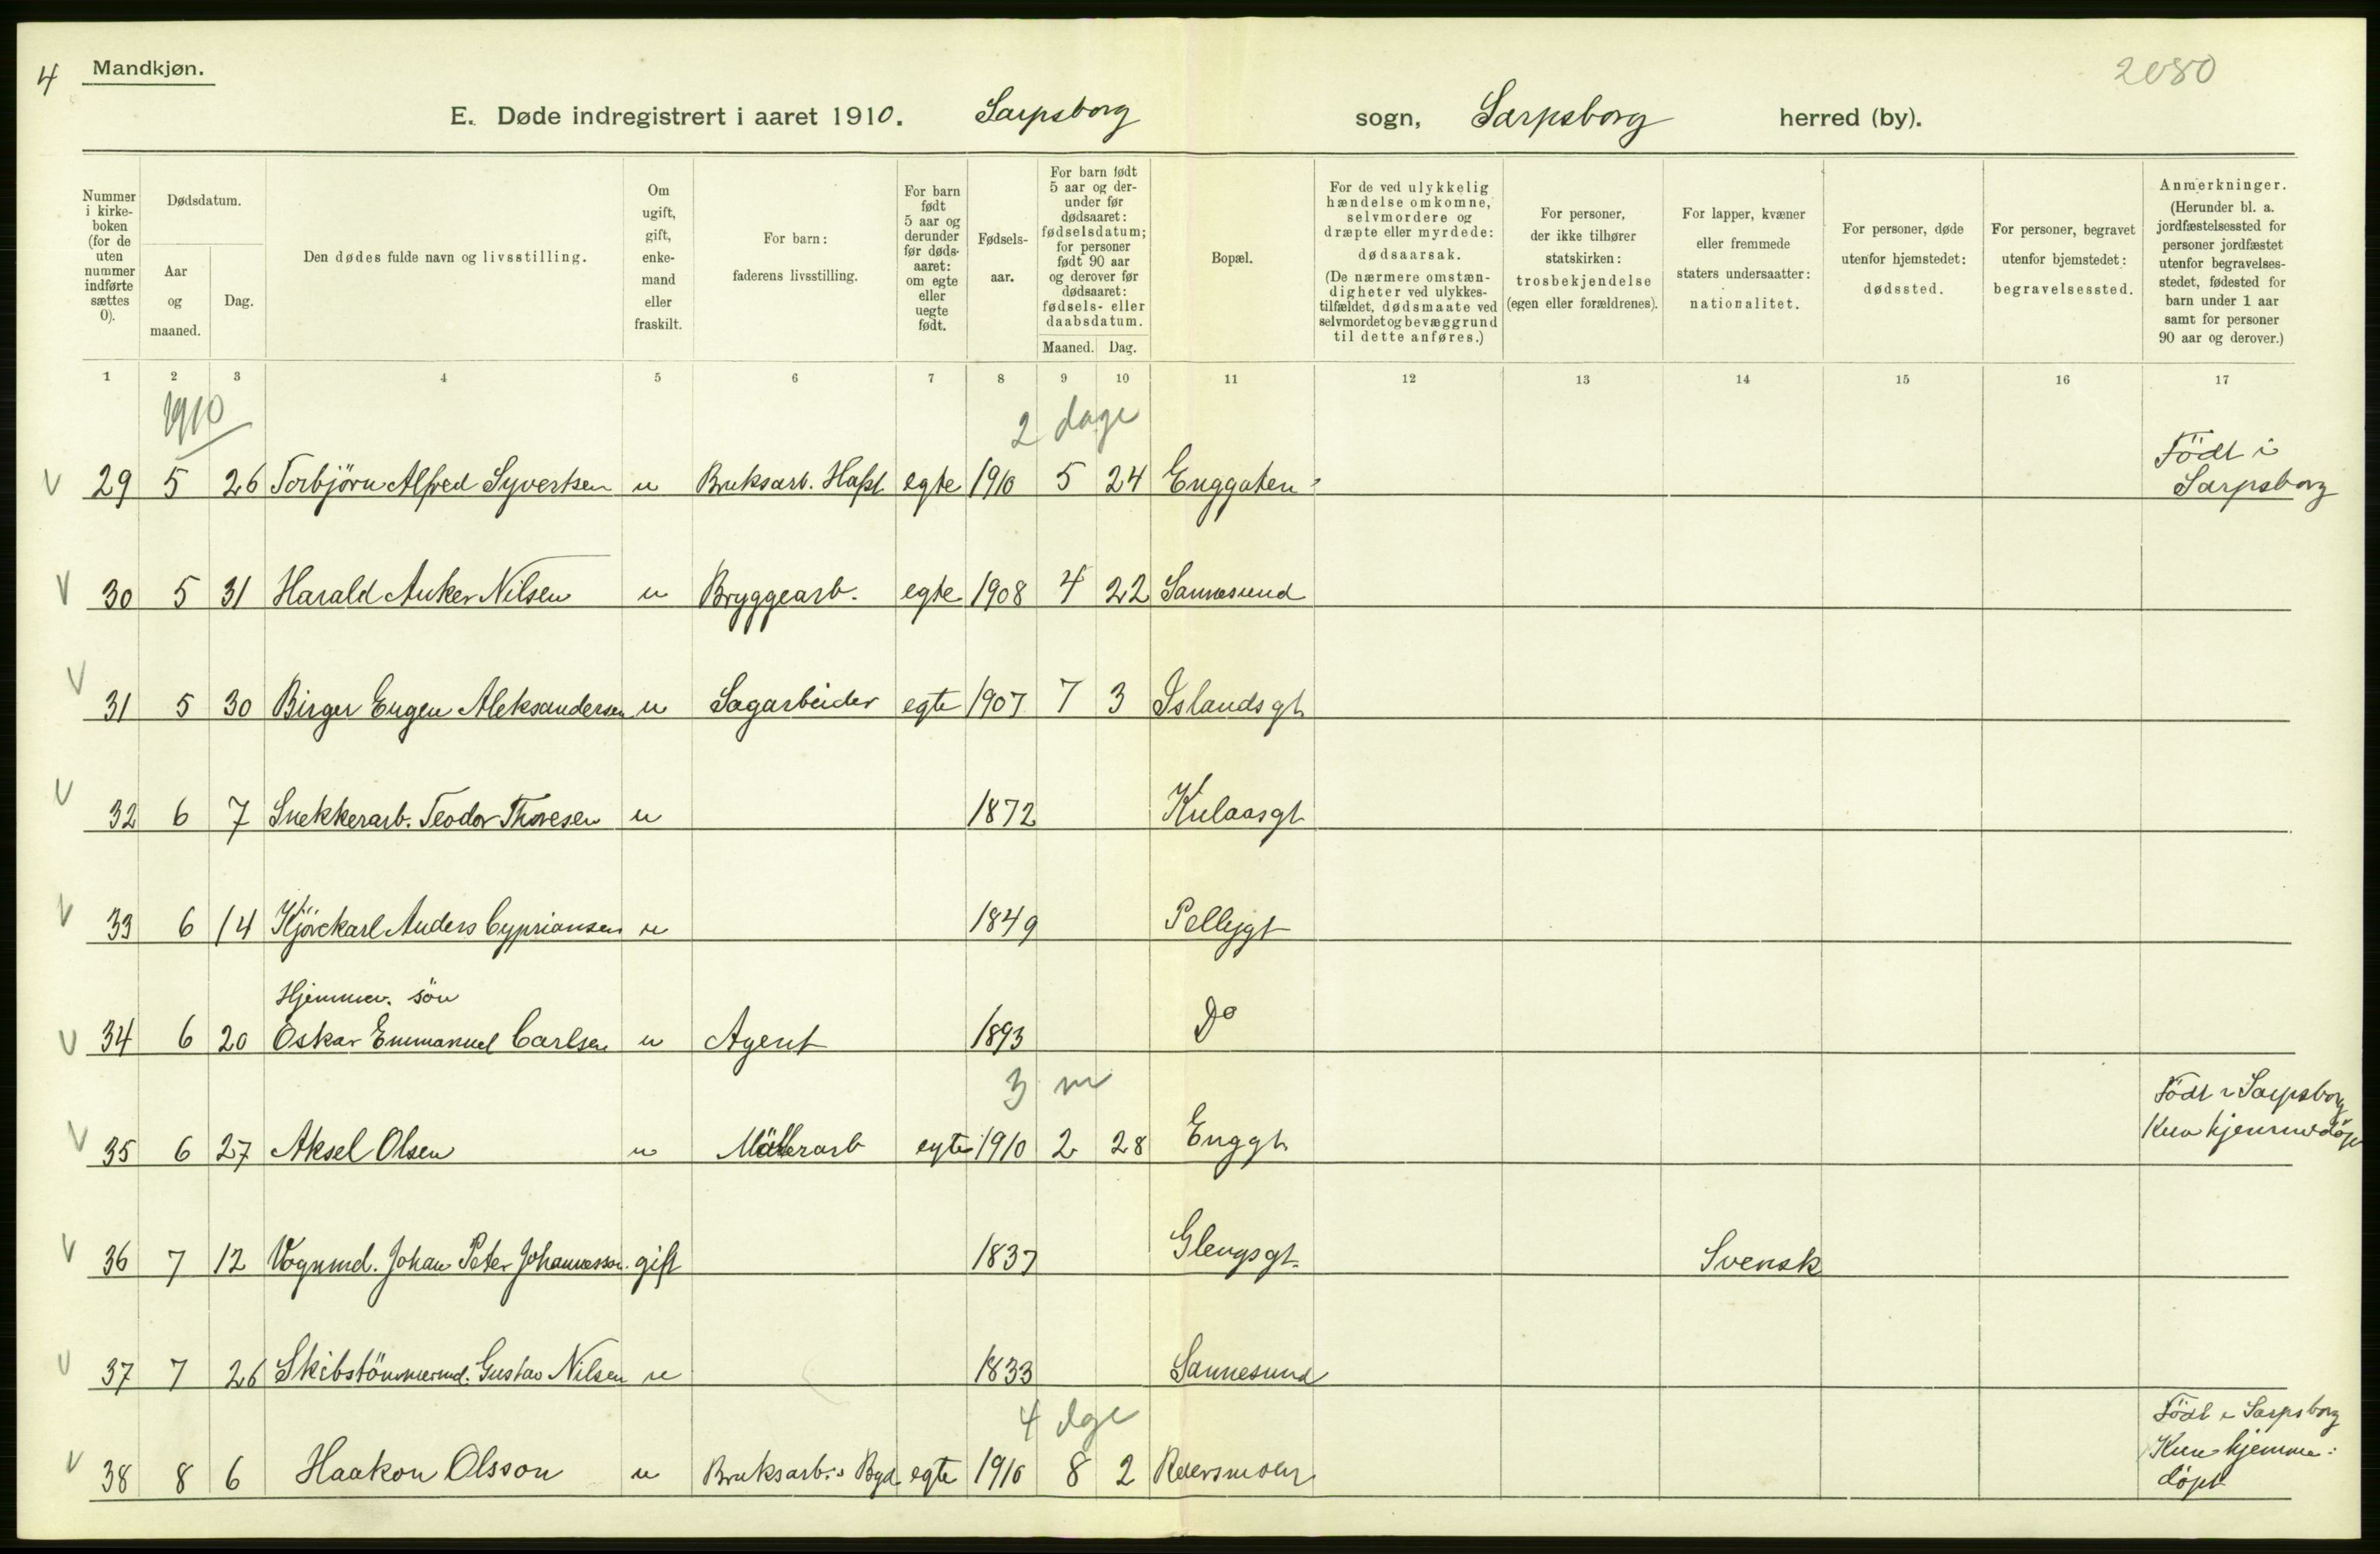 4 Mandkjøn. 2080
E. Døde indregistrert i aaret 1910. Sarpsborg sogn, Sarpsborg herred (by).
Nummer i kirke- boken (for de uten nummer indførte sættes 0).
Dødsdatum.
Aar og maaned.
Dag.
Den dødes fulde navn og livsstilling.
Om ugift, gift, enke- mand eller fraskilt.
For barn: faderens livsstilling.
For barn født 5 aar og derunder før døds- aaret: om egte eller uegte født.
Fødsels- aar.
For barn født 5 aar og der- under før dødsaaret: fødselsdatum; for personer født 90 aar og derover før dødsaaret: fødsels- eller daabsdatum.
Maaned. Dag.
Bopæl.
For de ved ulykkelig hændelse omkomne, selvmordere og dræpte eller myrdede: dødsaarsak. (De nærmere omstæn- digheter ved ulykkes- tilfældet, dødsmaate ved selvmordet og bevæggrund til dette anføres.)
For personer, der ikke tilhører statskirken: trosbekjendelse (egen eller forældrenes).
For lapper, kvæner eller fremmede staters undersaatter: nationalitet.
For personer, døde utenfor hjemstedet: dødssted.
For personer, begravet utenfor hjemstedet: begravelsessted.
Anmerkninger. (Herunder bl. a. jordfæstelsessted for personer jordfæstet utenfor begravelses- stedet, fødested for barn under 1 aar samt for personer 90 aar og derover.)
1 2 3 4 5 6 7 8 9 10 11 12 13 14 15 16 17
1910 2 dage
Födt i
V 29 5 26 Torbjörn Alfred Syvertsen u Bruksarb. Hafsl egte 1910 5 24 Enggaten Sarpsborg
V 30 5 31 Harald Anker Nilsen u Bryggearb. egte 1908 4 22 Sannesund
V 31 5 30 Birger Eugen Aleksandersen u Sagarbeider egte 1907 7 3 Islandsgt
V 32 6 7 Snekkerarb. Teodor Thoresen u 1872 Kulaasgt
V 33 6 14 Kjörekarl Anders Cypriansen u 1849 Pellygt
Hjemmev. sön
V 34 6 20 Oskar Emmanuel Carlsen u Agent 1893 Do
3 m Födt i Sarpsborg
Kun hjemmedöpt
V 35 6 27 Aksel Olsen u egte 1910 2 28 Enggt
V 36 7 12 Vognmd. Johan Peter Johannesson gift 1837 Glengsgt. Svensk
V 37 7 26 Skibstömmermd. Gustav Nilsen u 1833 Sannesund
4 dge Födt i Sarpsborg
Kun hjemme-
V 38 8 6 Haakon Olsson u Bruksarb. egte 1910 8 2 döpt